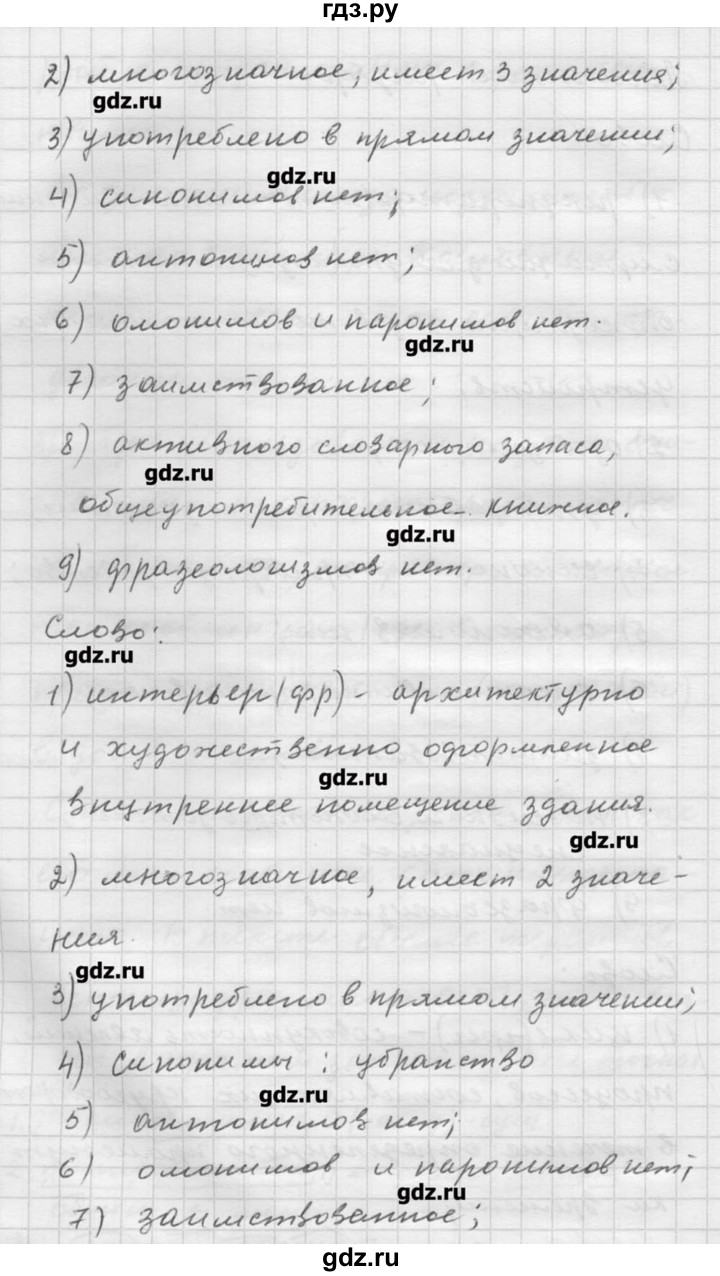 гдз.ру
2) многозначное, имеет 3 значения;
gdz.ru
3) употреблено в прямом значении;
gdz.ru
4) синонимов нет;
5) антонимов нет;
6) омонимов и паронимов нет.
gdz.ru
7) заимствованное;
8) активного словарного запаса,
gdz.ru
общеупотребительное - книжное.
gdz.ru
9) фразеологизмов нет.
Слово:
gdz.ru
1) интерьер (фр) - архитектурно
и художественно оформленное
gdz.ru
внутреннее помещение здания.
gdz.ru
2) многозначное, имеет 2 значе-
ния.
gdz.ru
3) употреблено в прямом значении;
4) синонимы : убранство
gdz.ru
5) антонимов нет;
6) омонимов и паронимов нет;
gdz.ru
7) заимствованное;
gdz.ru